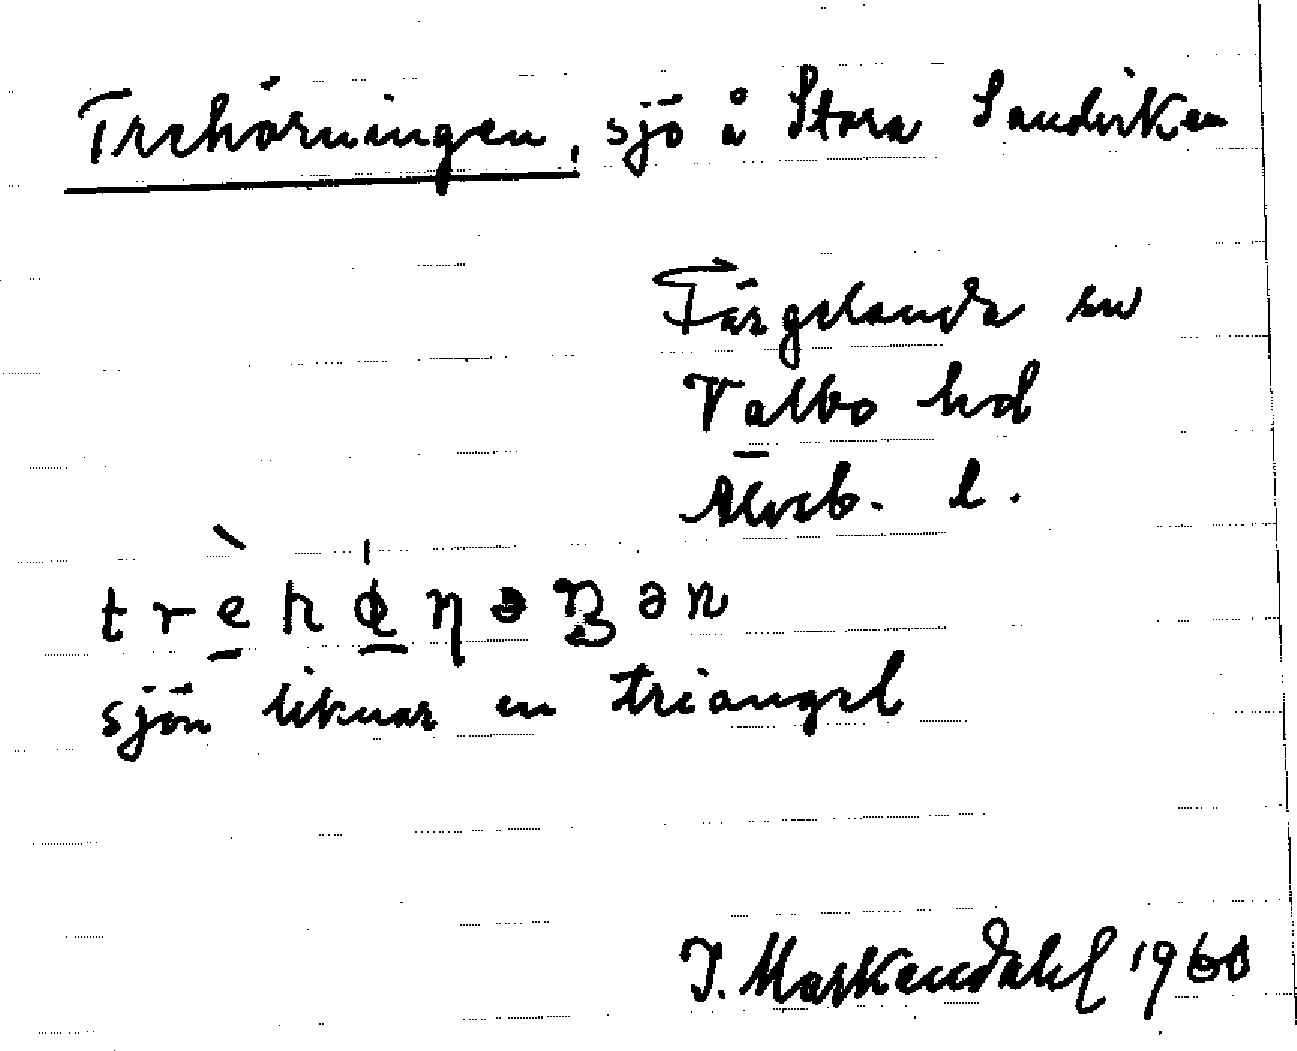 Trehörningen, sjö å Stora Sandviken
Färgelanda sn
Valbo hd
Älvsb. l.
sjön liknar en triangel
J. Markendahl 1960